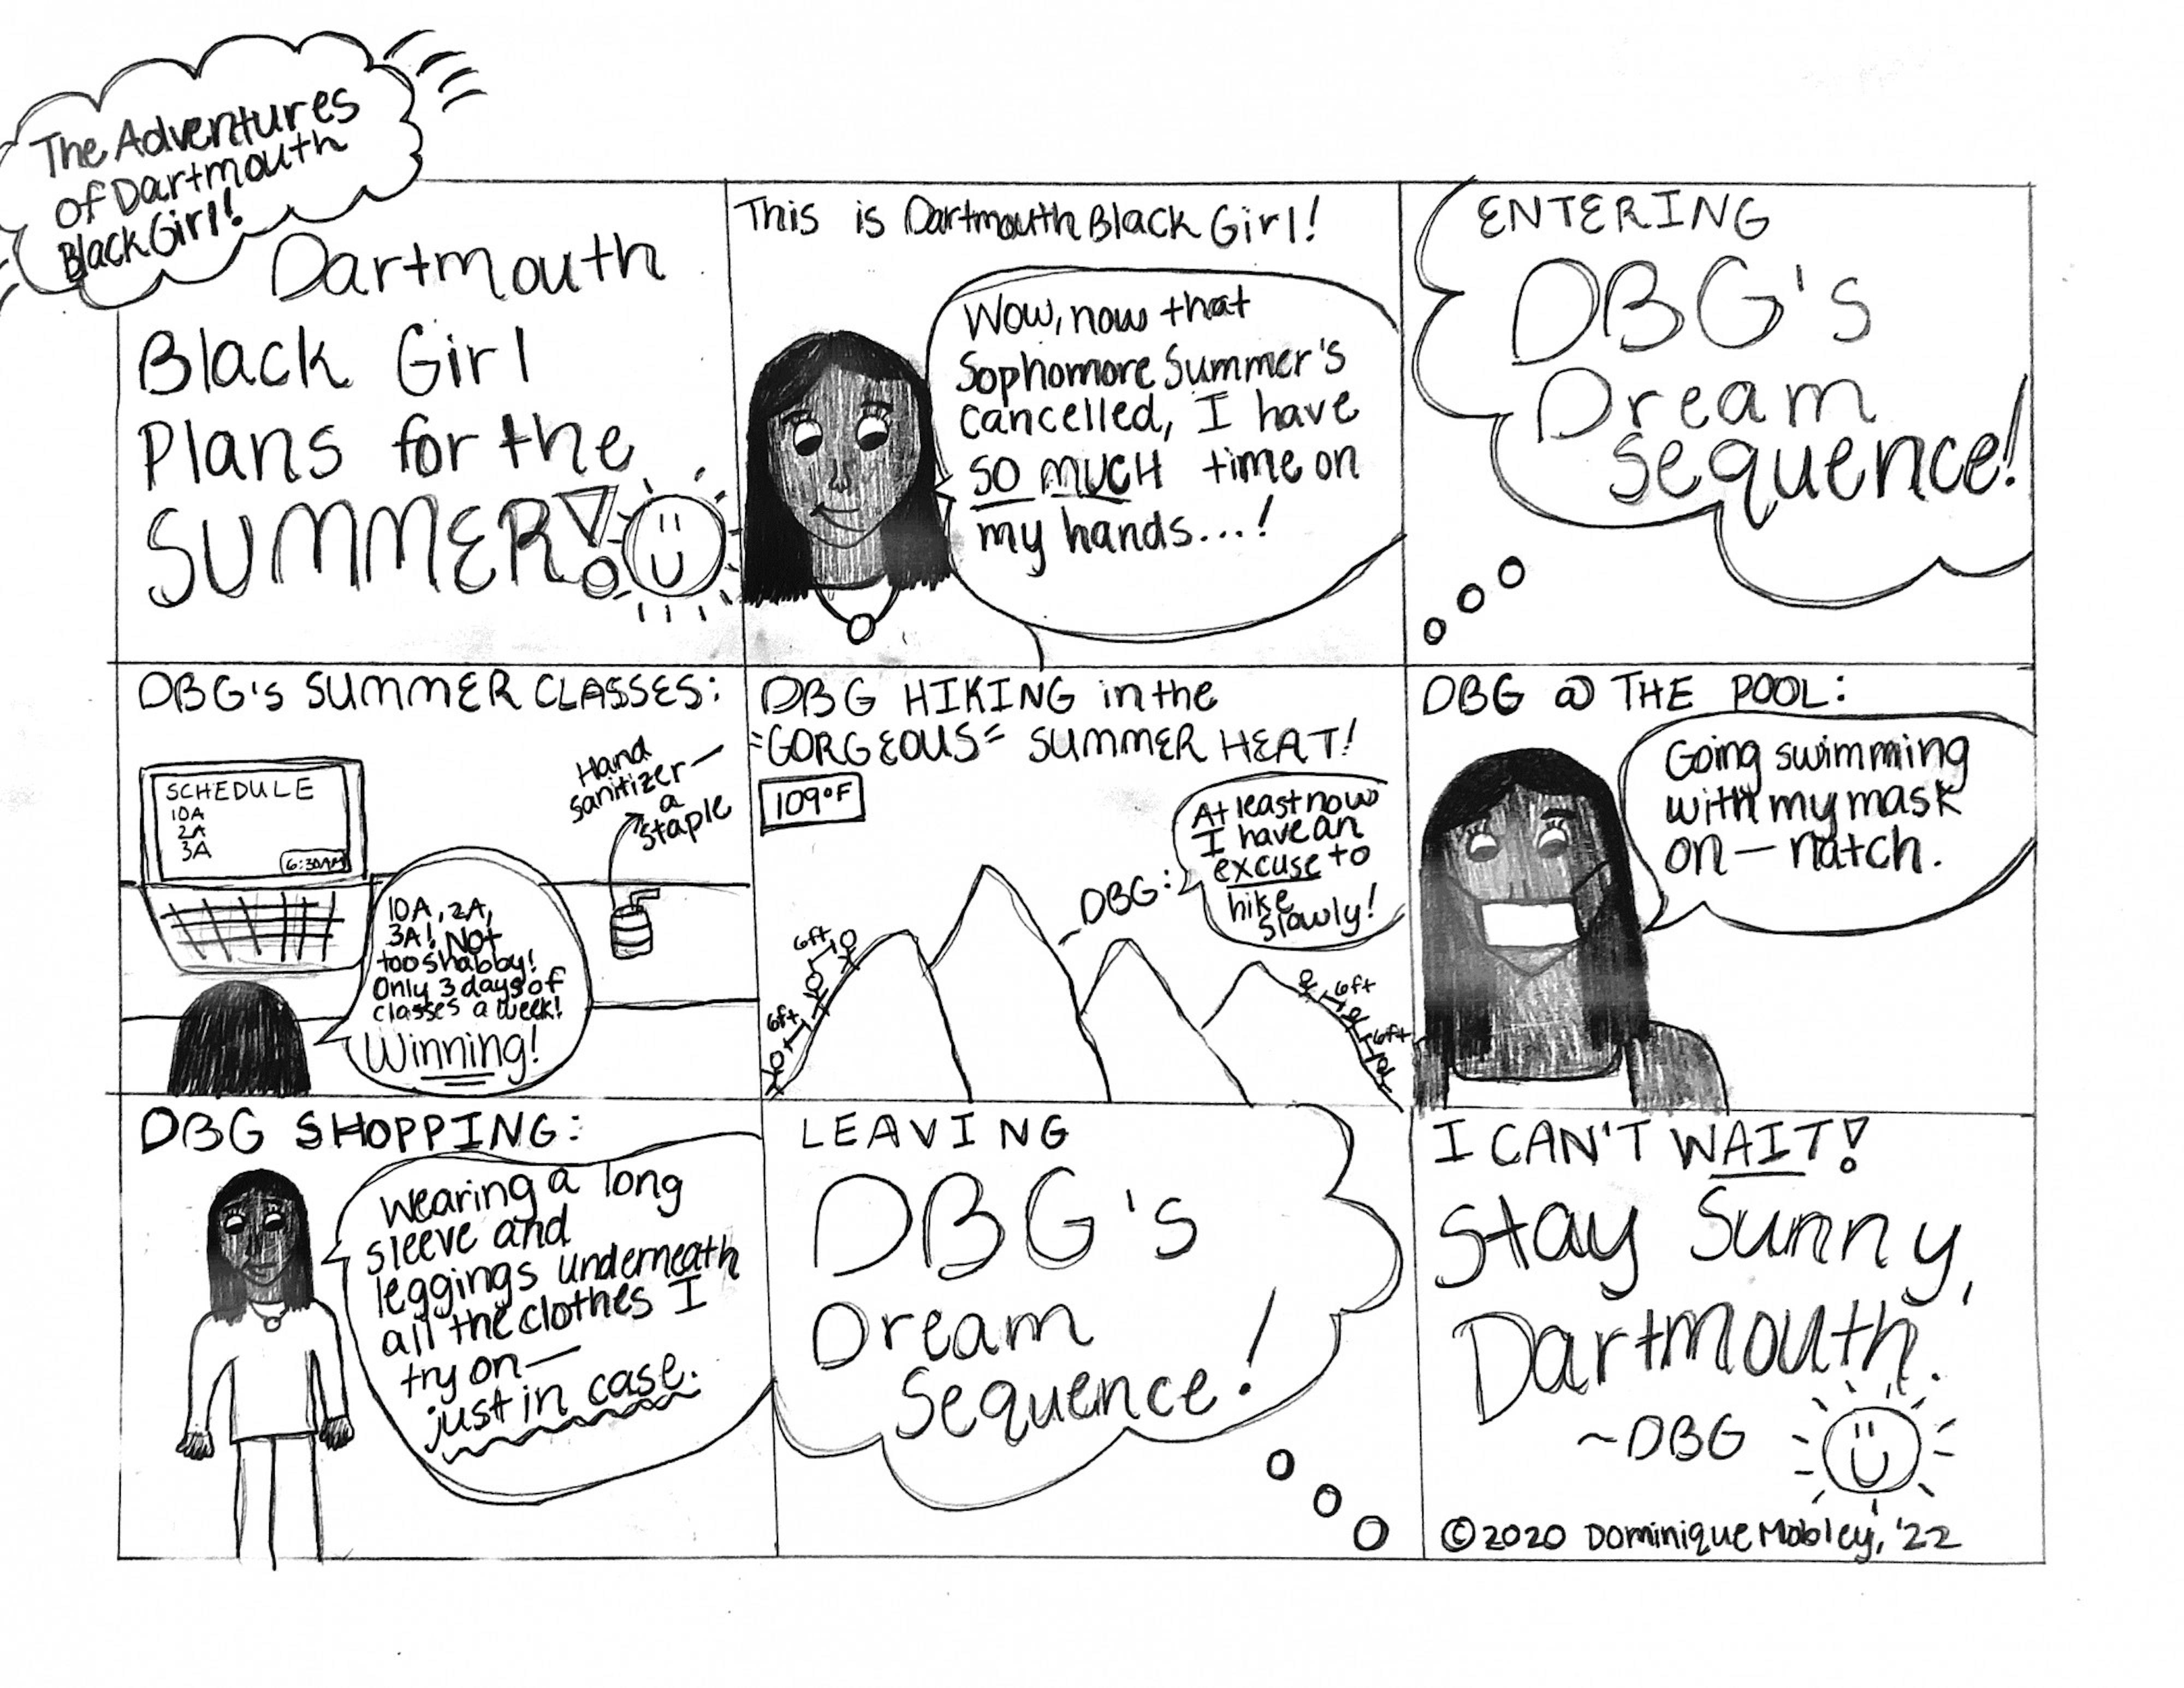 The Adventures
of Dartmouth
Black Girl!
Dartmouth
Black Girl
Plans for the
SUMMER!
This is Dartmouth Black Girl!
Wow, now that
Sophomore Summer's
cancelled, I have
SO MUCH time on
my hands...!
ENTERING
DBG's
Dream
Sequence!
DBG's SUMMER CLASSES:
SCHEDULE
10A
2A
3A
6:30AM
Hand
sanitizer—
a
staple
10A, 2A,
3A! Not
too shabby!
Only 3 days of
classes a week!
Winning!
DBG HIKING in the
=GORGEOUS= SUMMER HEAT!
109°F
At least now
I have an
excuse to
hike
slowly!
DBG:
6ft
6ft
6ft
6ft
DBG @ THE POOL:
Going swimming
with my mask
on — natch.
DBG SHOPPING:
Wearing a long
sleeve and
leggings underneath
all the clothes I
try on —
just in case.
LEAVING
DBG's
Dream
Sequence!
I CAN'T WAIT!
Stay Sunny,
Dartmouth.
~DBG
©2020 Dominique Mobley, '22